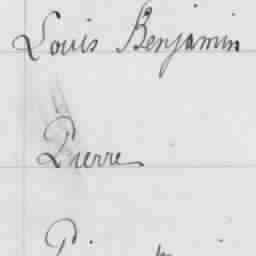 Louis Benjamin
Pierre